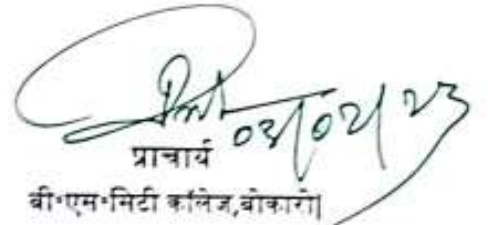 03/02/23
प्राचार्य
बी॰एम॰सिटी कॉलेज,बोकारो|